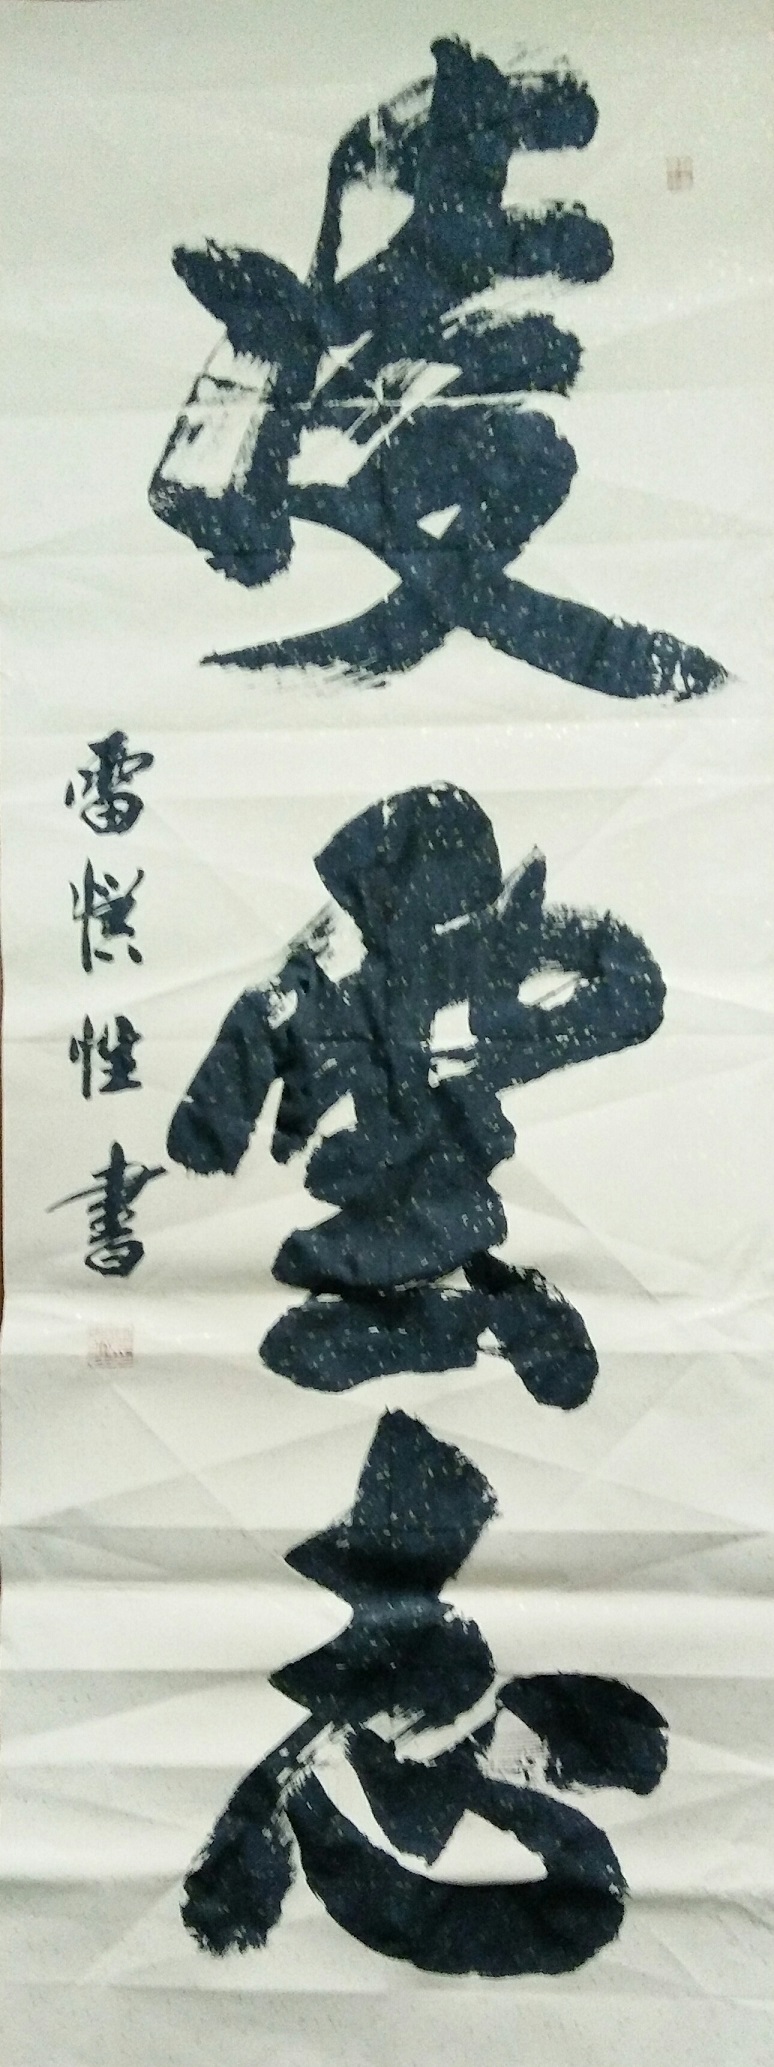 凌雲志
雷慎性書